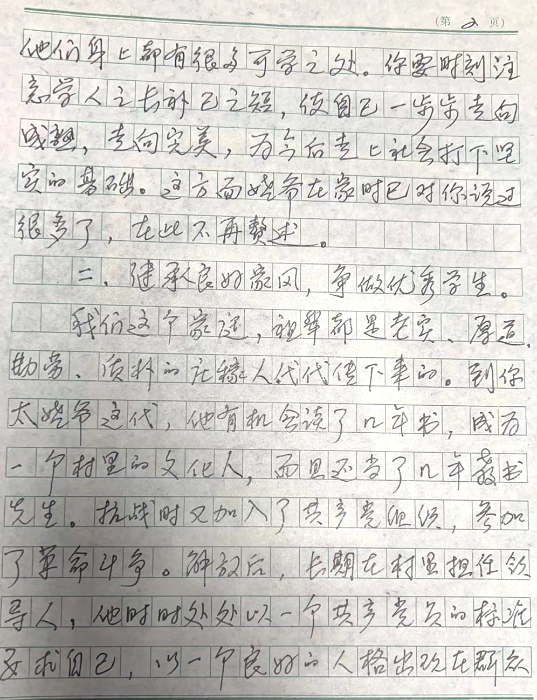 (第 2 页)
他们身上都有很多可学之处。你要时刻注
意学人之长补己之短，使自己一步步走向
成熟，走向完美，为今后走上社会打下坚
实的基础。这方面姥爷在家时已对你谈过
很多了，在此不再赘述。
二、继承良好家风，争做优秀学生。
我们这个家庭，祖辈都是老实、厚道、
勤劳、质朴的庄稼人代代传下来的。到你
太姥爷这代，他有机会读了几年书，成为
一个村里的文化人，而且还当了几年教书
先生。抗战时又加入了共产党组织，参加
了革命斗争。解放后，长期在村里担任领
导人，他时时处处以一个共产党员的标准
要求自己，以一个良好的人格出现在群众